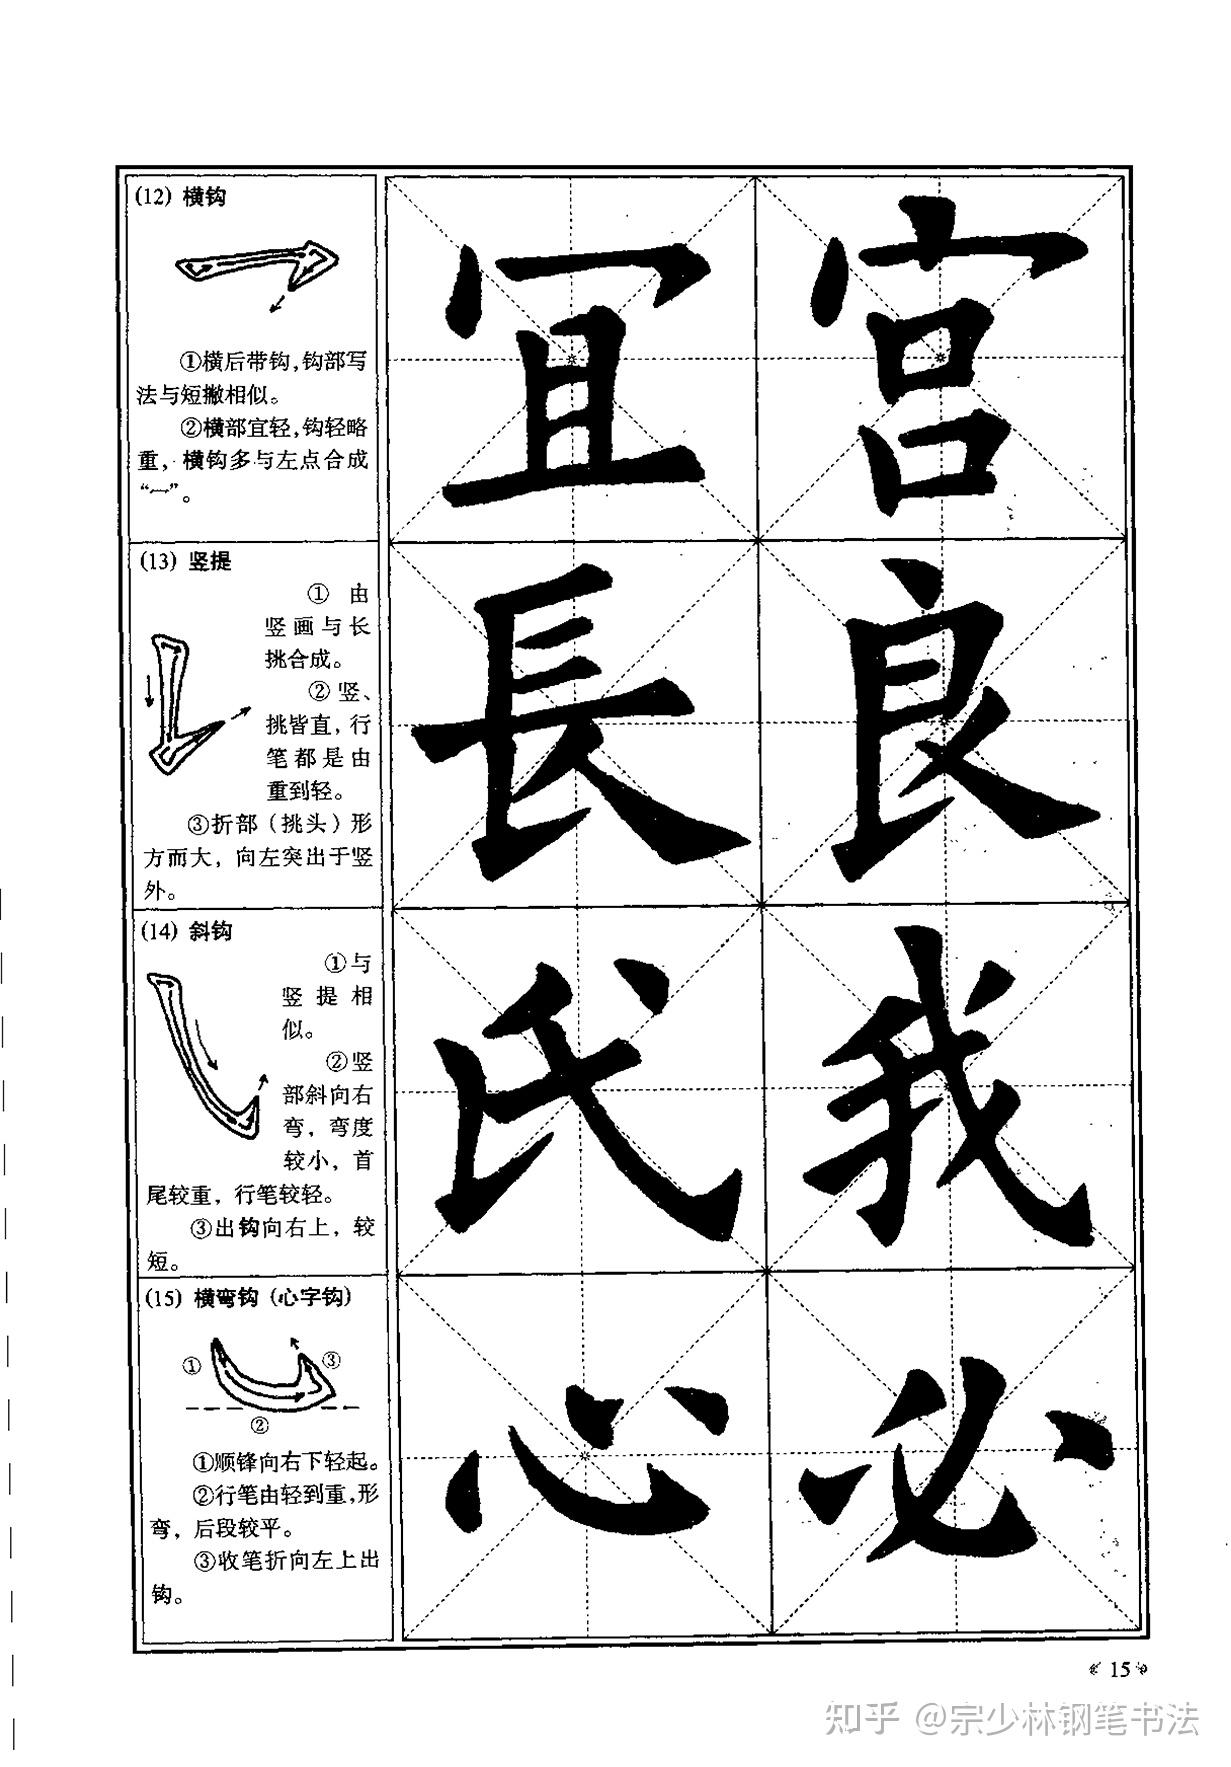 (12) 横钩
①横后带钩,钩部写
法与短撇相似。
②横部宜轻,钩轻略
重,横钩多与左点合成
“冖”。
宜 宫
(13) 竖提
① 由
竖画与长
挑合成。
② 竖、
挑皆直,行
笔都是由
重到轻。
③折部(挑头)形
方而大,向左突出于竖
外。
長 良
(14) 斜钩
①与
竖提相
似。
②竖
部斜向右
弯,弯度
较小,首
尾较重,行笔较轻。
③出钩向右上,较
短。
氏 我
(15) 横弯钩(心字钩)
① ③
②
①顺锋向右下轻起。
②行笔由轻到重,形
弯,后段较平。
③收笔折向左上出
钩。
心 必
15
知乎 @宗少林钢笔书法